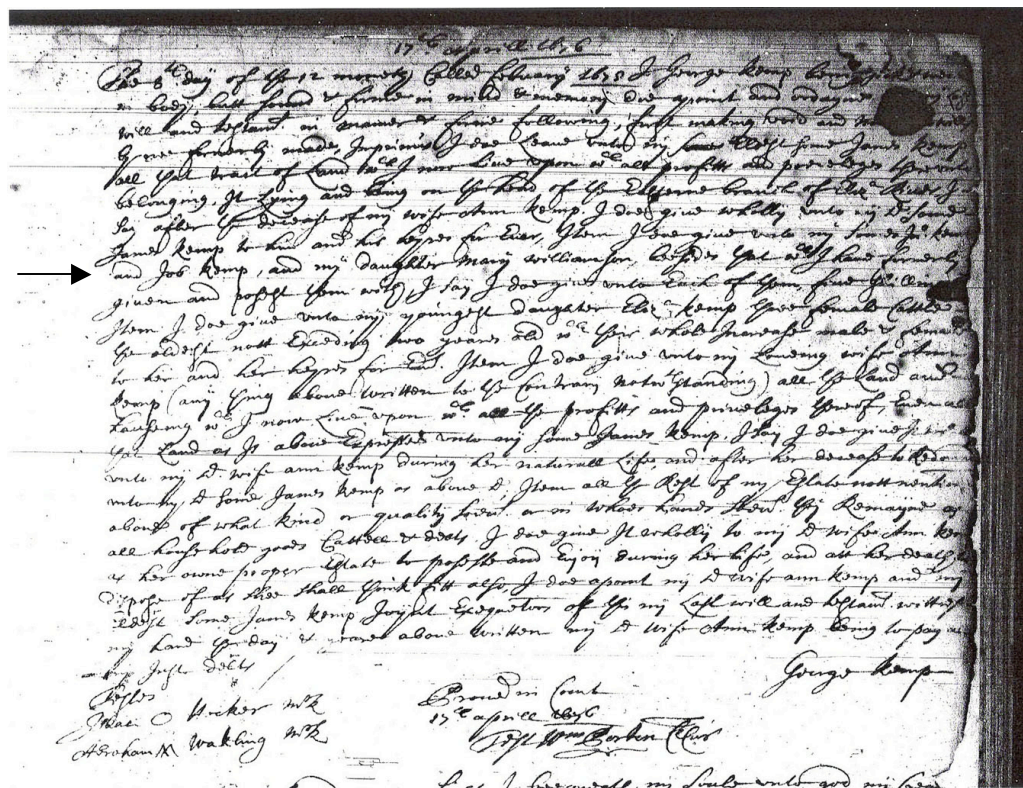 17th aprill 1676
The 8th day of the 12 moneth Called Febuary 1675 I George Kemp being
in body, butt sound & firme in mind & memory doe apoint and ordayne
will and testamt. in maner & forme following, first making void and
by me formerly made, Inprimis I doe Leave unto my Eldest sonne James Kemp
all that tract of Land wch I now Live upon wth all profitts and priveleges therunto
belonging, It Lying and being on the head of the Easterne branch of Eliz: River, I
say after the decease of my wife Ann Kemp. I doe give wholly unto my sd sonne
James Kemp to him and his heyres for Ever, Item I doe give unto my sonnes Kemp
and Job Kemp, and my daughter Mary Williamson, besides that wch I have formerly
given and possest them with, I say I doe give unto Each of them five
Item I doe give unto my youngest daughter Eliz: Kemp three female Cattle
the oldest nott Exceding two yeares old wth their whole Increase male & female
to her and her heyres for Ever. Item I doe give unto my Loveing wife Ann
Kemp (any thing above written to the contrary notwthstanding) all the Land and
houseing wch I now Live upon wth all the profitts and priveleges thereof, Even all
that Land as Is above Expressed unto my sonne James Kemp, I say I doe give It
unto my sd wife ann Kemp during her naturall Life, and after her decease to
unto my sd sonne James Kemp as above sd, Item all the Rest of my Estate nott mention
above of what kind or quality soever or in whoes hands soever thy Remayne as
all houshold goods Cattell & debts, I doe give It wholly to my sd wife Ann Kemp
as her owne proper Estate to possesse and Enjoy during her life, and att her death
dispose of as shee shall think fitt also, I doe apoint my sd wife ann Kemp and my
eldest sonne James Kemp Joynt Exequetors of this my Last will and testamt. wittnes
my hand the day & yeare above written my sd wife Ann Kemp being to pay all
my Just debts
George Kemp
Testes
Hocker mrk
Abraham Wakling mrk
Proved in Court
17th aprill 1676
Test Wm